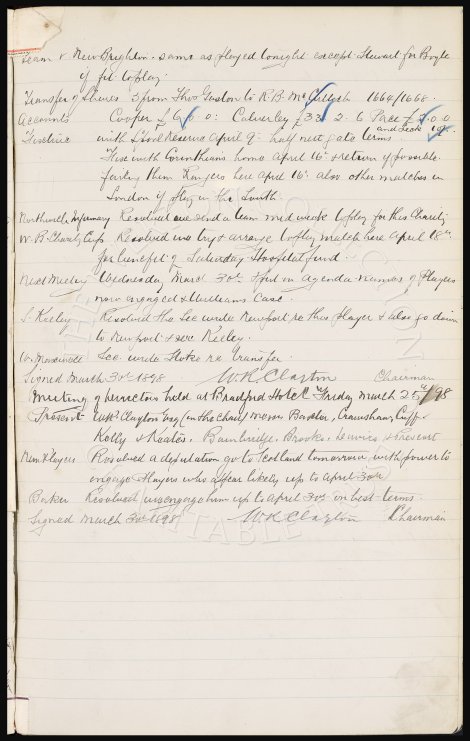 Team v New Brighton. Same as played tonight except Stewart for Boyle
if fit to play.
Transfer of Shares 3 from Thos Guston to R B. McCulloch 1664/1668.
Accounts Cooper £6 6 0: Calverley £33 2. 6 Pace £5 0 0
Fixtures with L'pool Reserve April 9th half nett gate terms and Leek 19th
Fixe with Corinthians home April 16th & return if possible
failing them Rangers here April 16th also other matches in
London if play in the South.
Northwich Infirmary Resolved we send a team mid week to play for this Charity
W. B. Charity Cup Resolved we try & arrange to play match here April 18th
for benefit of Saturday Hospital fund.
Next Meeting Wednesday March 30th & put on agenda re names of Players
now engaged & Williams Case.
S. Keeley Resolved the Sec write Newport re this Player & also go down
to Newport & see Keeley.
W. Maxwell Sec write Stoke re transfer.
Signed March 30th 1898 W. R. Clayton Chairman
Meeting of Directors held at Bradford Hotel Friday March 25th/98
Present Wm R Clayton Esq (in the chair) Messrs Baxter, Crawshaw, Cuff,
Kelly & Keates. Bainbridge. Brooks. Davies &
New Players Resolved a deputation go to Scotland tomorrow with power to
engage Players who appear likely up to April 30th
Barker Resolved we engage him up to April 30th on best terms.
Signed March 30th 1898 W R Clayton Chairman